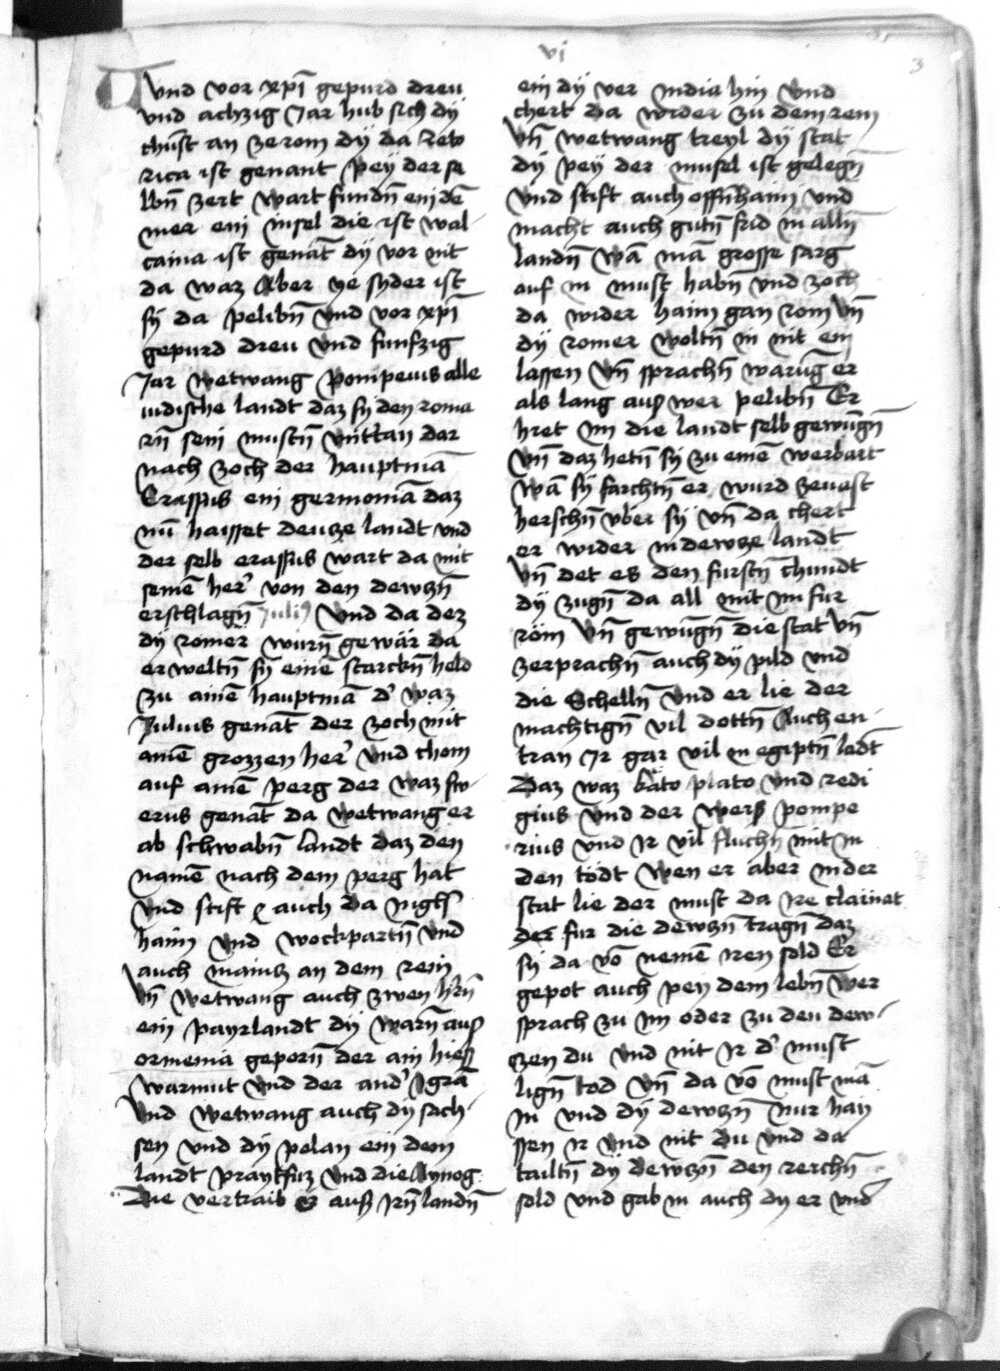 vi
3
Und vor xp̄i gepurd dreu
und achzig Jar hub sich dÿ
chūst an ze rom dÿ da reto
rica ist genant peÿ der se
lbn̄ zert wart fundn̄ ein dē
mer ein insel die ist wal
cama ist genāt dÿ vor nit
da waz Aber ye syder ist
sÿ da pelibn̄ und vor xp̄i
gepurd dreu und funfzig
Jar wetwang Pompeius alle
iudische landt daz sÿ den roma
rn̄ sein mustn̄ untttan dar
nach zoch der hauptmā
Crassus ein germoniā daz
nū haisset deusze landt und
der selb crassus wart da mit
seinē her' von den dewszn̄
erschlagn̄ Juli9 und da dez
dÿ romer wurn̄ gewar da
er weltn̄ sÿ einē starckn̄ held
zu ainē hauptmā d' waz
Julius genāt der zoch mit
ainē grozzen her' und chom
auf ainē perg der waz sw
erus genāt da wetwang er
ab schwabn̄ landt daz den
namē nach dem perg hat
und stift er auch da
haim und wockpartn̄ und
auch maincz an dem rein
un̄ wetwang auch zwen hrn̄
ein payrlandt dÿ warn̄ aus
ormenia geporn̄ der ain hiess
warmut und der and' Igrā
und wetwang auch dÿ sach
sen und dÿ polan ein dem
landt und die
Die vertraib er auss Irn̄ landn̄
ein dÿ ver india hin und
chert da wider zu dem rein
un̄ wetwang treyl dÿ stat
dÿ peÿ der musel ist gelegn̄
und stift auch offnhaim und
macht auch gutn̄ frid in alln̄
landn̄ wā mā grosse sarg
auf in must habn̄ und zoch
da wider haim gan rom un̄
dÿ romer woltn̄ in nit ein
lassen un̄ sprachn̄ warūg er
als lang aus wer pelibn̄ Er
hret im die landt selb gewūgn̄
un̄ daz hetn̄ sÿ zu einē werbart
wā sÿ farchtn̄ er wurd zeuast
herschn̄ uber sÿ un̄ da chert
er wider in dewsze landt
un̄ det es den furstn̄ chundt
dÿ zugn̄ da all mit im fur
röm un̄ gewūgn̄ die stat un̄
zerprachn̄ auch dÿ pild und
die Schelln̄ und er lie der
machtign̄ vil dottn̄ Auch en
tran Ir gar vil in egiptn̄ lādt
Daz waz kāto plato und
gius und der weis pompe
rius und Ir vil fluchn̄ mit in
den tödt wen er aber in der
stat lie der must da Ire clainet
der fur die dewszn̄ tragn̄ daz
sÿ da vō nemē Iren sold Er
gepot auch pey dem lebn̄ wer
sprach zu im oder zu den dew
szen du und nit Ir d' must
lign̄ tod un̄ da vō must mā
In und dÿ dewszn̄ nur hay
ssen Ir und nit du und da
tailtn̄ dÿ dewszn̄ den reichn̄
sold und gab in auch dy er und